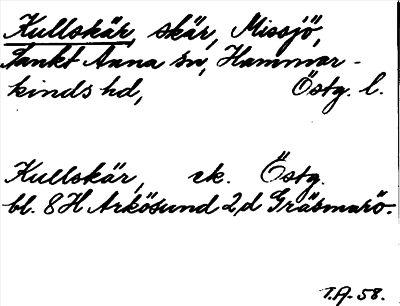 Kullskär, skär, Missjö,
Sankt Anna sn, Hammar-
kinds hd, Östg. l.
Kullskär, ek. Östg.
bl. 8H Arkösund 2,d Gräsmarö.
T.A. 58.